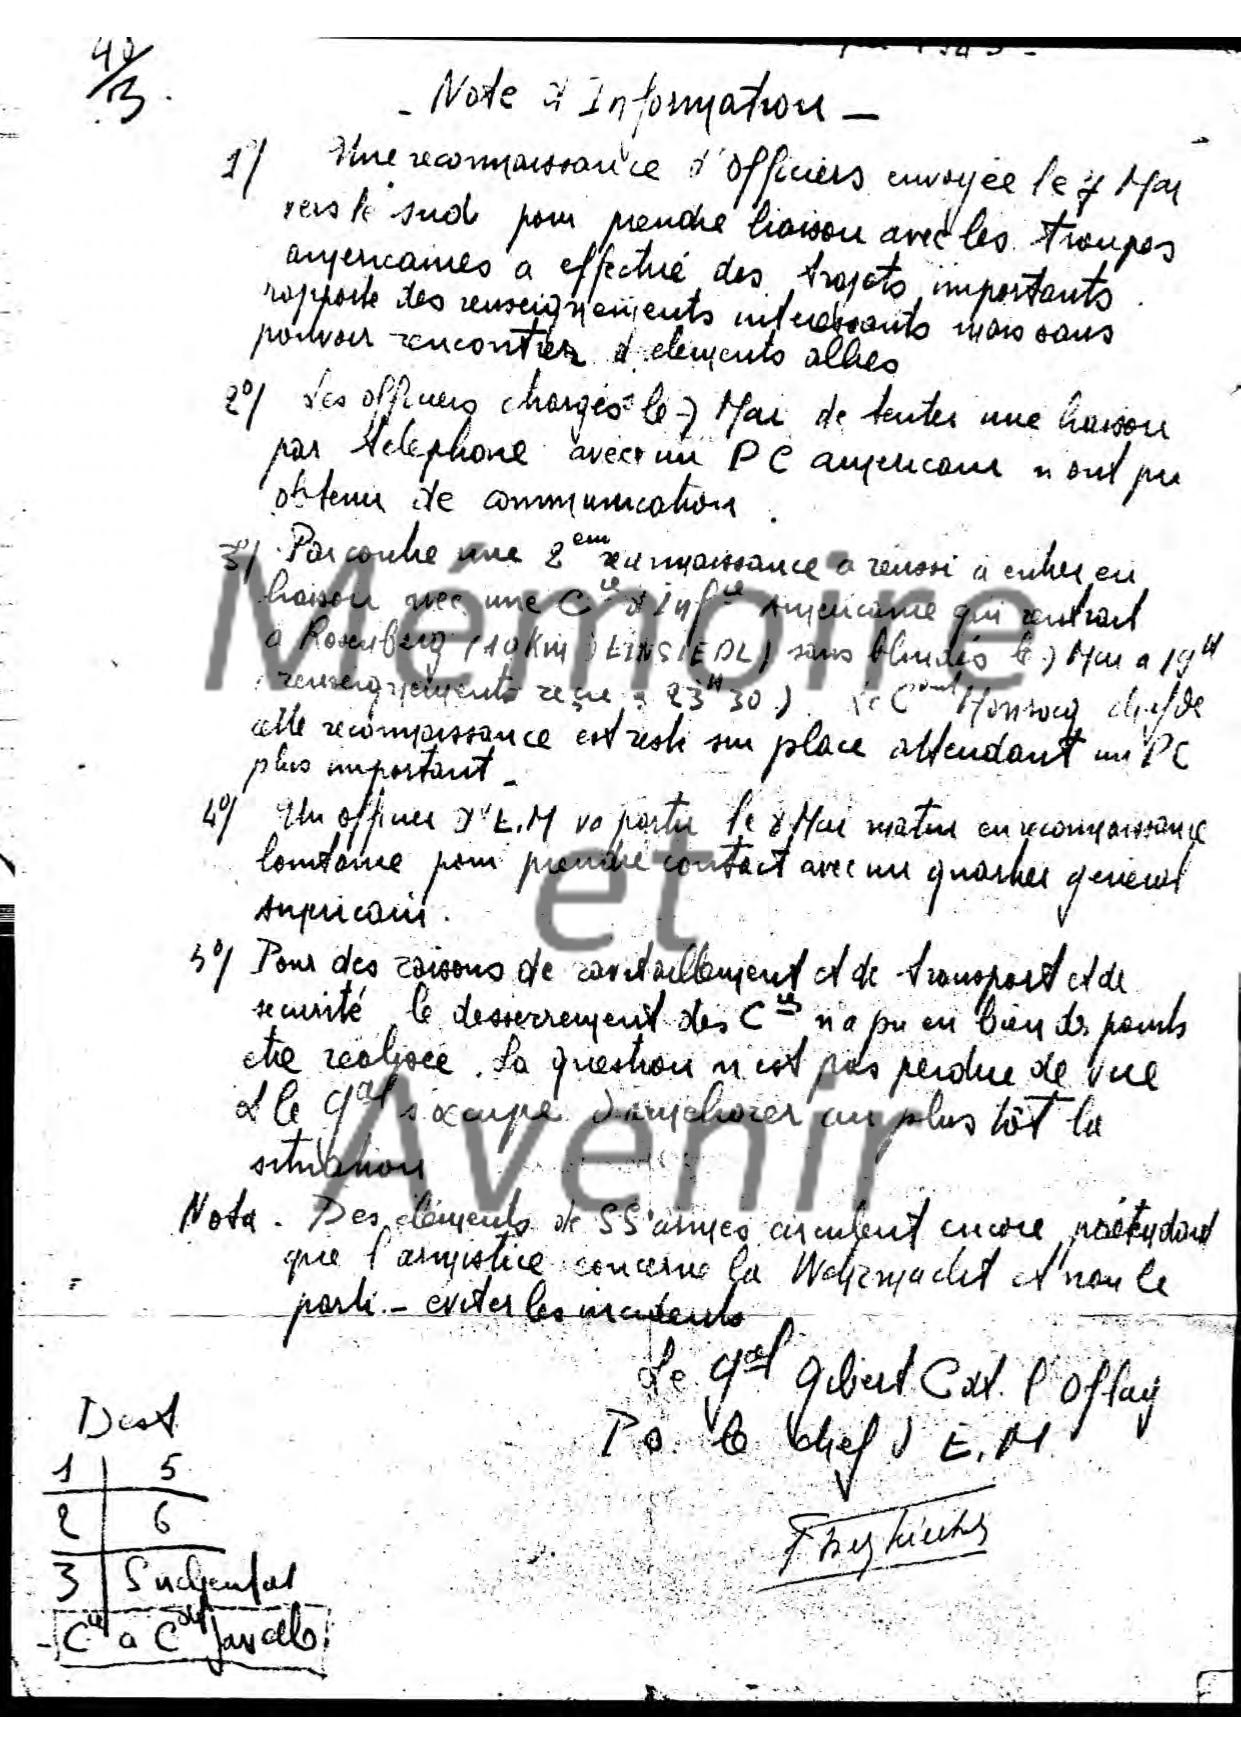 48/3.
1945 -
- Note d'Information -
1°/ Une reconnaissance d'officiers envoyée le 7 Mai
vers le sud pour prendre liaison avec les troupes
americaines a effectué des trajets importants
rapporte des renseignements interessants mais sans
pouvoir rencontrer d'elements allies
2°/ Les officiers chargés le 7 Mai de tenter une liaison
par telephone avec un PC americain n ont pu
obtenir de communication.
3°/ Par contre une 2eme reconnaissance a réussi a entrer en
liaison avec une Cie d'Infie Americaine qui rentrait
a Rosenberg (10 Km d'EINSIEDL) sans blindés le 7 Mai a 19H
(renseignements reçu a 23H30.) Le Cdnt chef de
cette reconnaissance est resté sur place attendant un PC
plus important -
4°/ Un officier d'E.M va partir le 8 Mai matin en reconnaissance
lointaine pour prendre contact avec un quartier general
Americain.
5°/ Pour des raisons de ravitaillement et de transport et de
securité le desserrement des Cies n a pu en bien des points
etre réalisée. La question n est pas perdue de vue
& le Gal s'occupe d'ameliorer au plus tôt la
situation
Nota. Des éléments de SS armés circulent encore prétendant
que l'armistice concerne la Wehrmacht et non le
parti. - eviter les incidents
Le Gal Gibert Cdt. l'Oflag
Po. le chef d'E.M.
Dest
1 | 5
2 | 6
3 | Sudjenlal
- Cie a Cdt Javelle
Mémoire
et
Avenir